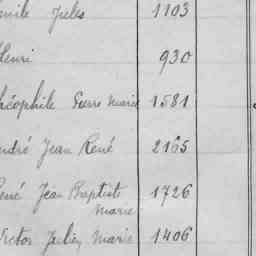 mile Jules 1103
Henri 930
héophile Pierre Marie 1581
ndré Jean René 2165
ené Jean Baptiste 1726
Marie
ictor Julien Marie 1406